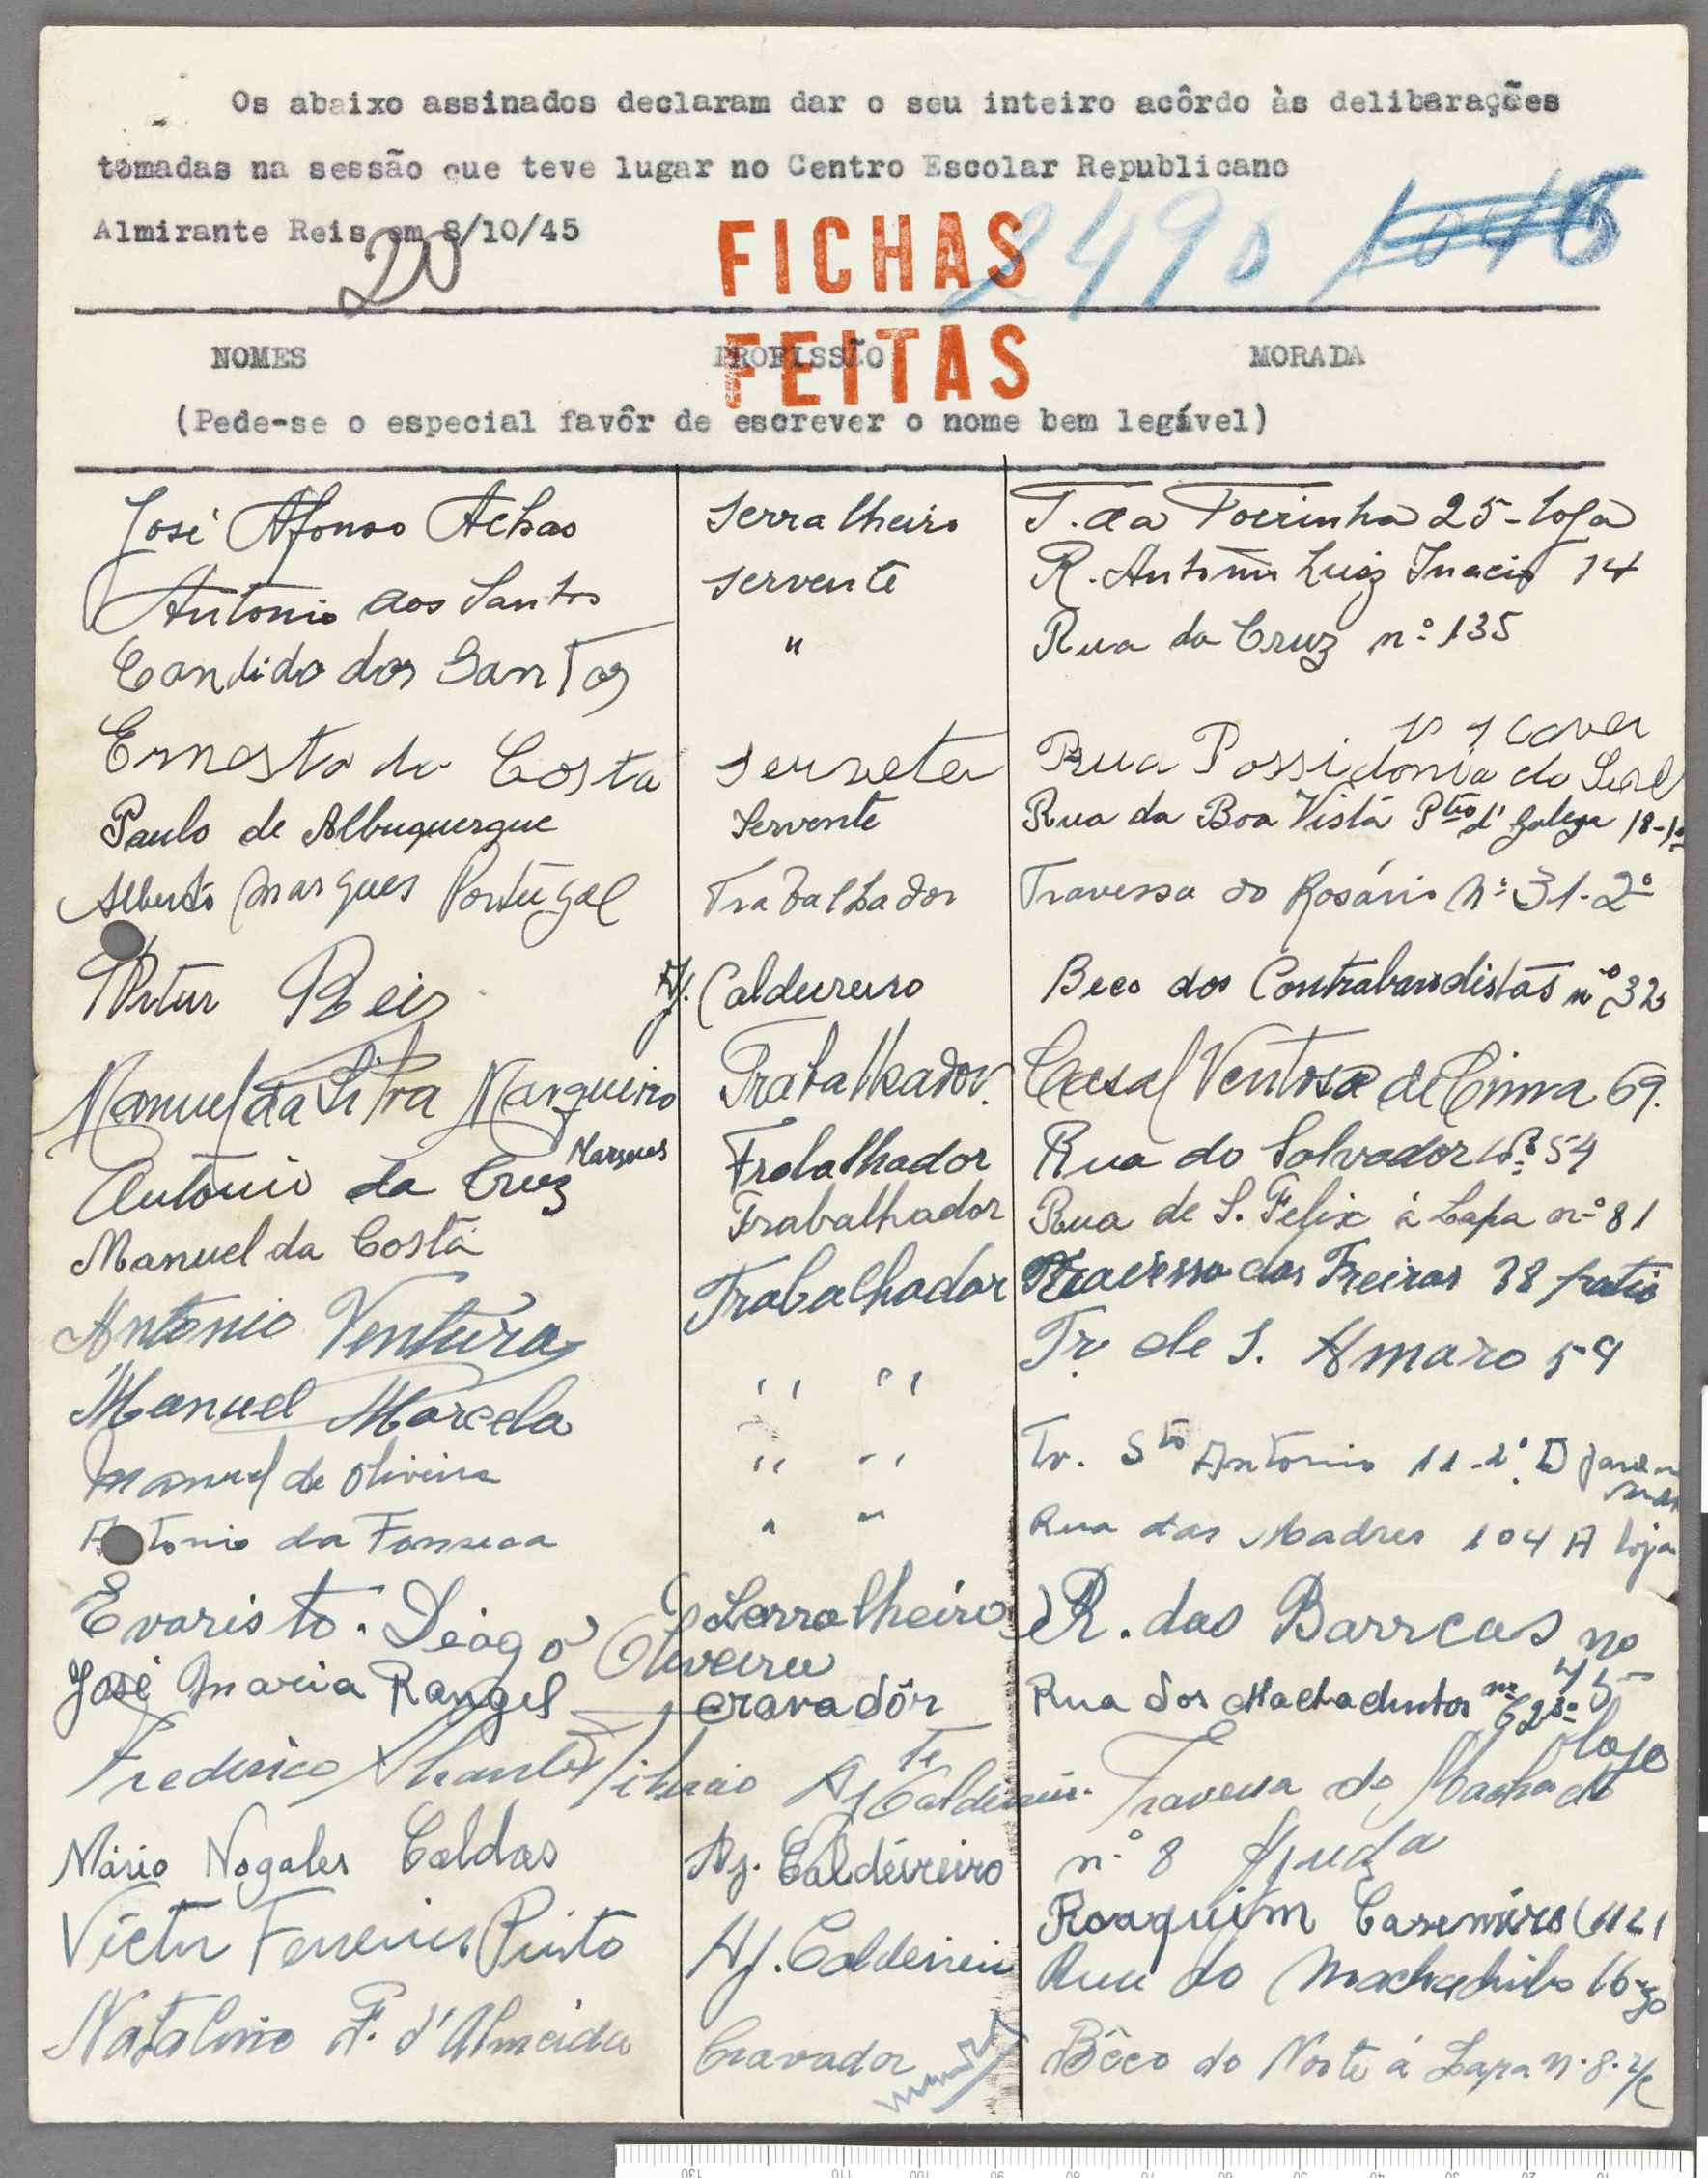 Os abaixo assinados declaram dar o seu inteiro acôrdo às deliberações
tomadas na sessão que teve lugar no Centro Escolar Republicano
Almirante Reis em 8/10/45
20
FICHAS
2490
1046
FEITAS
NOMES PROFISSÃO MORADA
(Pede-se o especial favôr de escrever o nome bem legível)
José Afonso Achas Serralheiro T. da Toirinha 25-loja
Antonio dos Santos Servente R. Antonio Luiz Inacio 14
Candido dos Santos " Rua da Cruz nº 135
Ernesto da Costa Servete Rua Possidonio da
Paulo de Albuquerque Servente Rua da Boa Vista Ptio d' Galega 18-1º
Alberto Marques Portugal Trabalhador Travessa do Rosário Nº 31-2º
Artur Reis Aj. Caldureiro Beco dos Contrabandistas nº 32
Manuel da Silva Marqueiro Trabalhador. Casal Ventoso de Cima 69.
Antonio da Cruz Marques Trabalhador Rua do Salvador Nº 54
Manuel da Costa Trabalhador Rua de S. Felix á Lapa nº 81
Antonio Ventura Trabalhador Travessa das Freiras 38 patio
Manuel Marcela ,, ,, Tr. de S. Amaro 59
Manuel de Oliveira ,, ,, Tv. Sto Antonio 11-2º D
Antonio da Fonseca " " Rua das Madres 104 A loja
Evaristo Diogo Oliveira Serralheiro R. das Barrcas no
José Maria Rangel cravadôr Rua dos Machadinhos nº 62
loja
Frederico Aj te Caldeireiro Travessa do Machado
Mário Nogales Caldas Aj. Caldeireiro nº 8 Ajuda
Victor Ferreira Pinto Aj. Caldeireiro Roaquim Casemiro 21
Rua do Machadinho 16
Natalino F. d'Almeida Cravador Bêco do Norte á Lapa n. 8. r/c